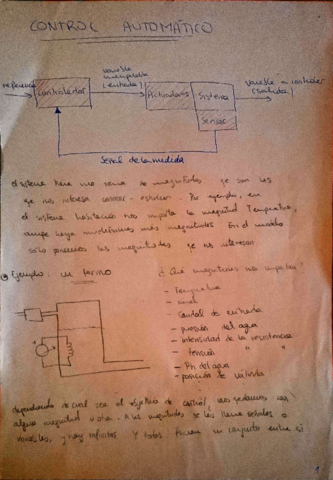 CONTROL AUTOMÁTICO
referencia
Controlador
variable
manipulable
(entrada)
Actuadores
Sistema
Sensor
variable a controlar
(salida)
Señal de la medida
el sistema tiene una serie de magnitudes que son las
que nos interesa conocer - estudiar. Por ejemplo, en
el sistema habitación nos importa la magnitud Temperatura,
aunque haya muchísimas más magnitudes. En el modelo
sólo ponemos las magnitudes que nos interesan
Ejemplo: un termo
¿Qué magnitudes nos importan?
- Temperatura
- nivel
- Caudal de entrada
- presión del agua
- intensidad de la resistencia
- tensión " "
- Ph del agua
- posición de válvula
dependiendo de cual sea el objetivo de control, nos quedamos con
alguna magnitud u otra. A las magnitudes se les llama señales o
variables, y hay infinitas. Y todas forman un conjunto entre sí
1